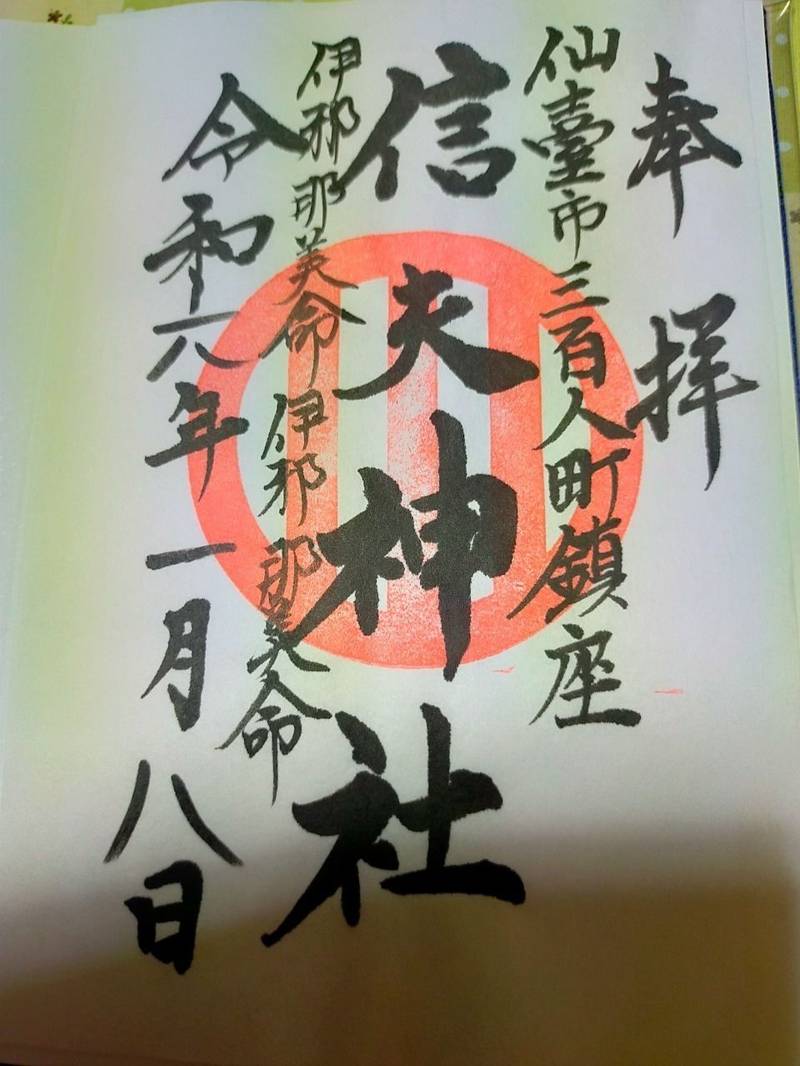 奉拝
仙臺市三百人町鎮座
信夫神社
伊邪那美命 伊邪那美命
令和六年一月八日